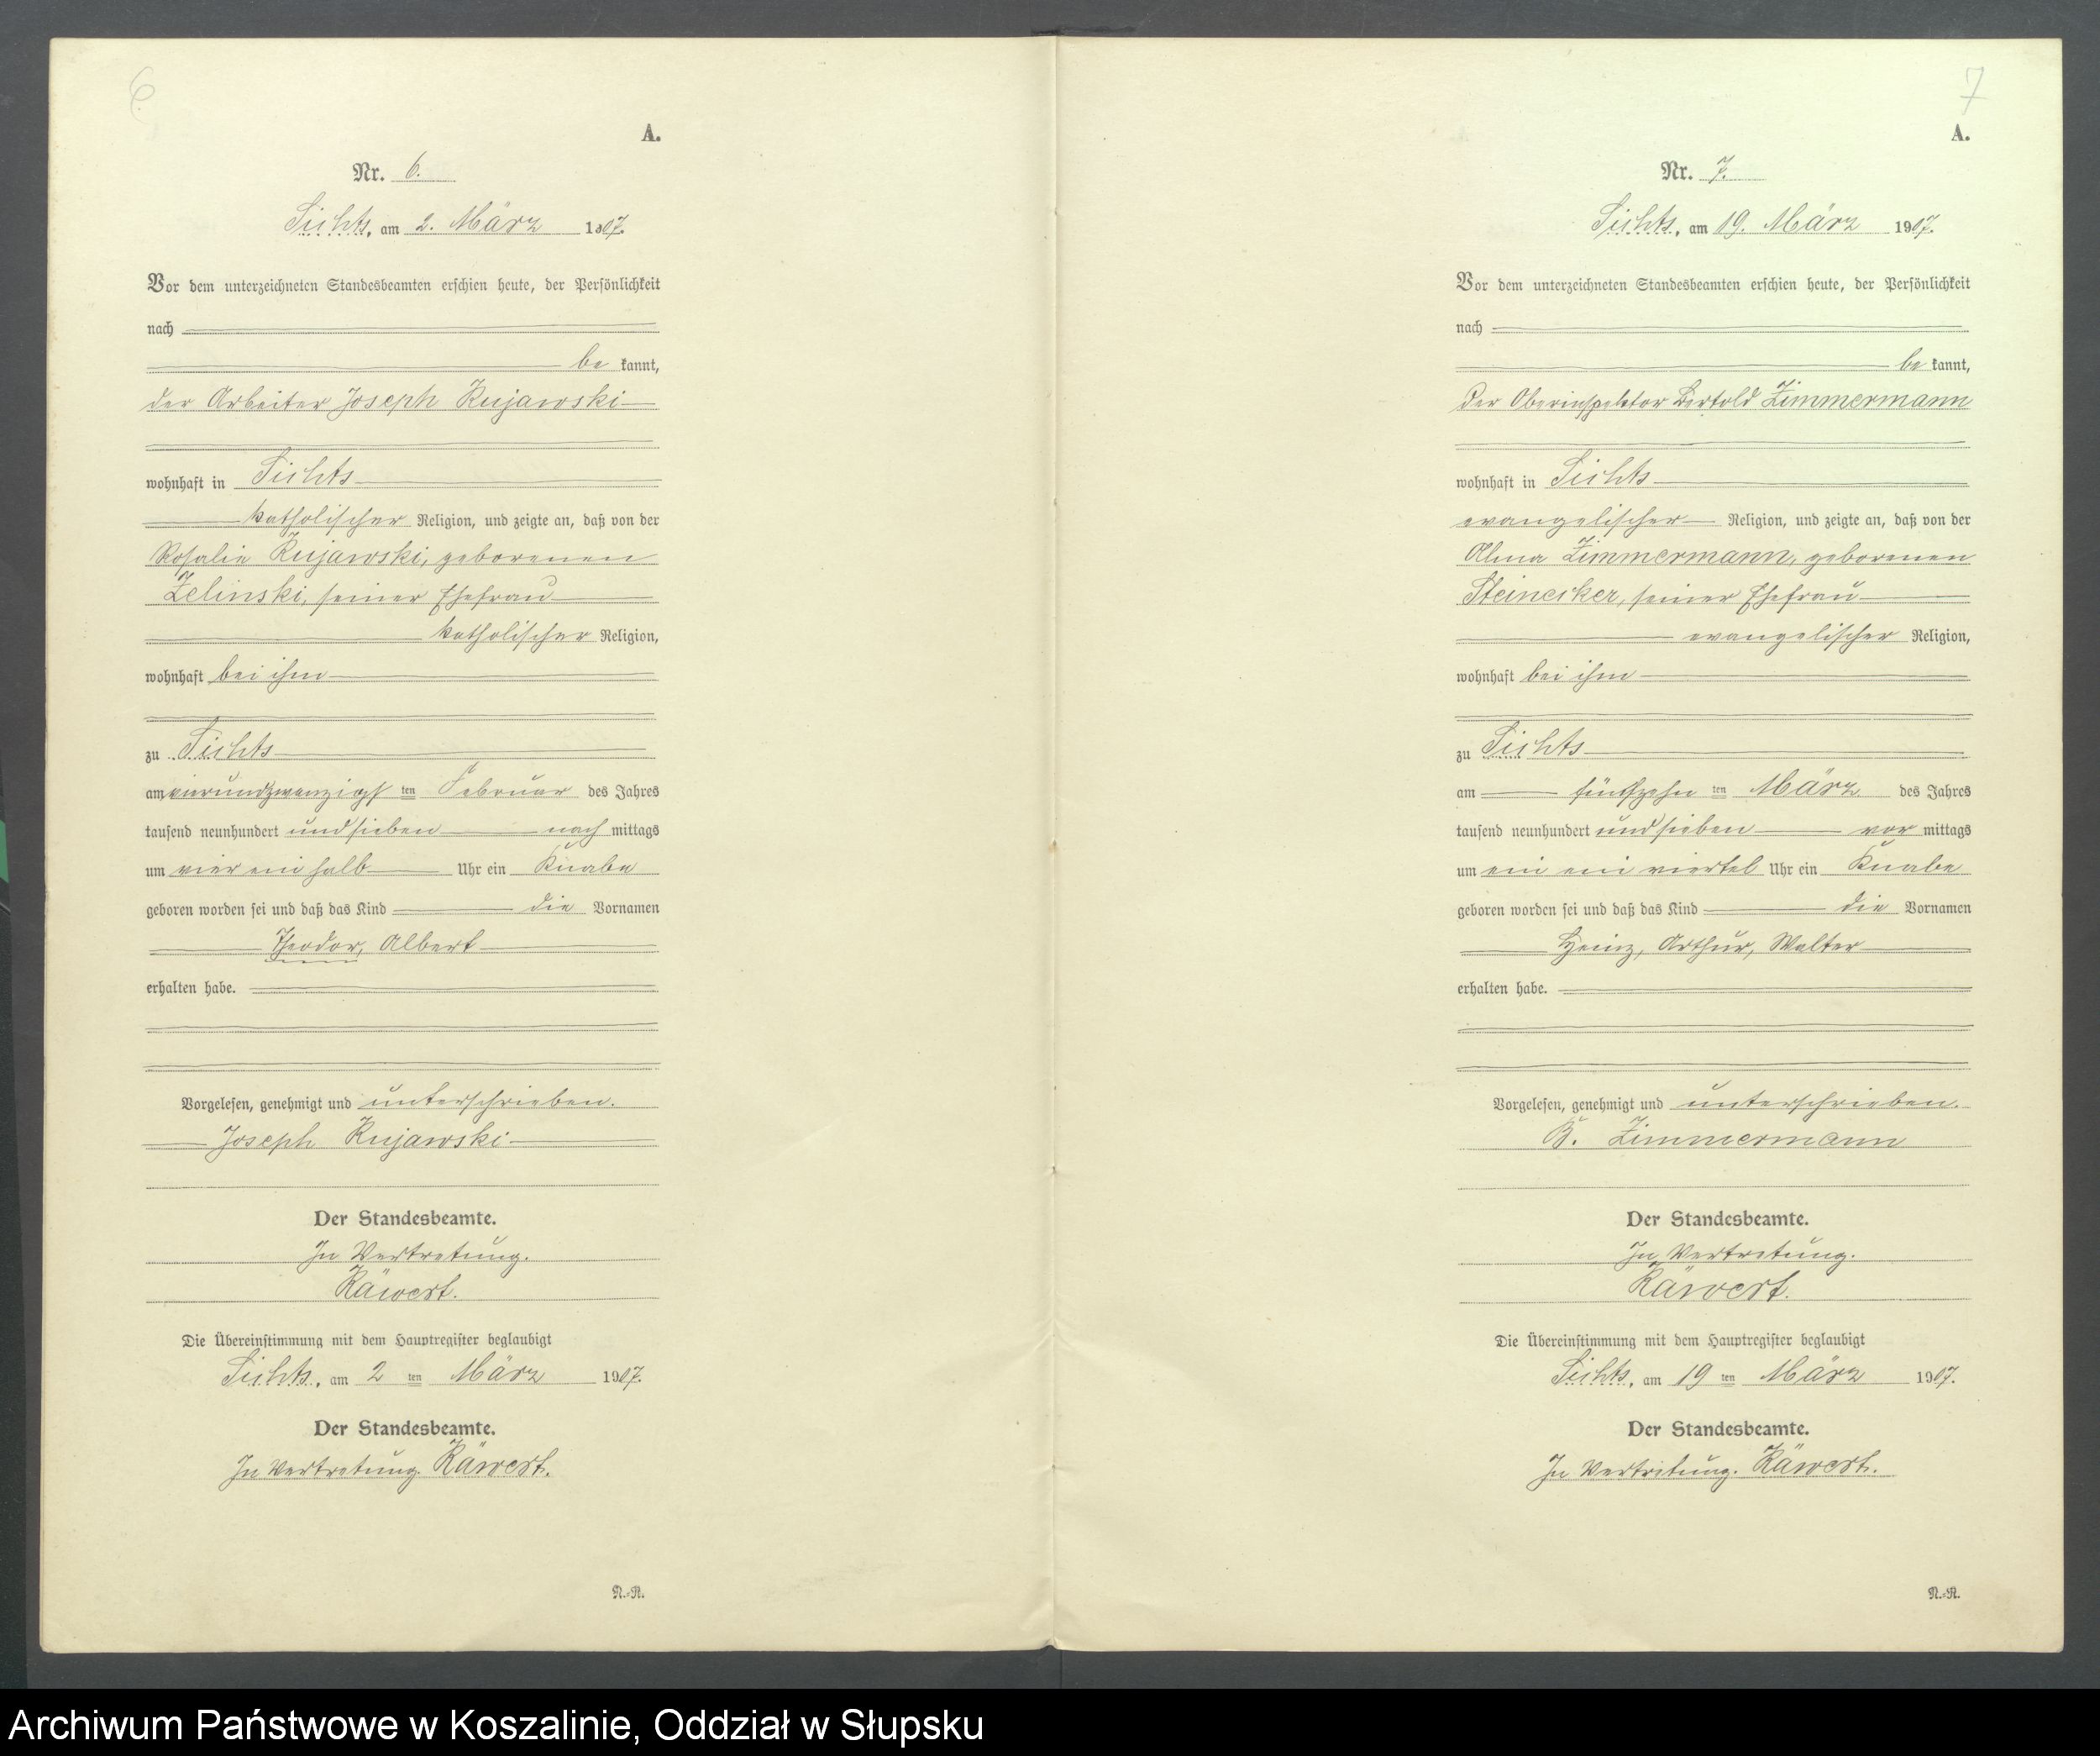 6
A.
Nr. 6.
Sichts, am 2. März 1907.
Vor dem unterzeichneten Standesbeamten erschien heute, der Persönlichkeit
nach
be kannt,
der Arbeiter Joseph Kujawski
wohnhaft in Sichts
katholischer Religion, und zeigte an, daß von der
Rosalie Kujawski, geborenen
Zelinski, seiner Ehefrau
katholischer Religion,
wohnhaft bei ihm
zu Sichts
am vierundzwanzigs ten Februar des Jahres
tausend neunhundert und sieben nach mittags
um vier ein halb Uhr ein Knabe
geboren worden sei und daß das Kind die Vornamen
Theodor, Albert
erhalten habe.
Vorgelesen, genehmigt und unterschrieben.
Joseph Kujawski
Der Standesbeamte.
In Vertretung.
Räwert.
Die Übereinstimmung mit dem Hauptregister beglaubigt
Sichts, am 2 ten März 1907.
Der Standesbeamte.
In Vertretung. Räwert.
N.-R.
7
A.
Nr. 7.
Sichts, am 19. März 1907.
Vor dem unterzeichneten Standesbeamten erschien heute, der Persönlichkeit
nach
be kannt,
der Oberinspektor Bertold Zimmermann
wohnhaft in Sichts
evangelischer Religion, und zeigte an, daß von der
Alma Zimmermann, geborenen
Steinecker, seiner Ehefrau
evangelischer Religion,
wohnhaft bei ihm
zu Sichts
am fünfzehn ten März des Jahres
tausend neunhundert und sieben vor mittags
um ein ein viertel Uhr ein Knabe
geboren worden sei und daß das Kind die Vornamen
Heinz, Arthur, Walter
erhalten habe.
Vorgelesen, genehmigt und unterschrieben.
B. Zimmermann
Der Standesbeamte.
In Vertretung.
Räwert.
Die Übereinstimmung mit dem Hauptregister beglaubigt
Sichts, am 19 ten März 1907.
Der Standesbeamte.
In Vertretung. Räwert.
N.-R.
Archiwum Państwowe w Koszalinie, Oddział w Słupsku